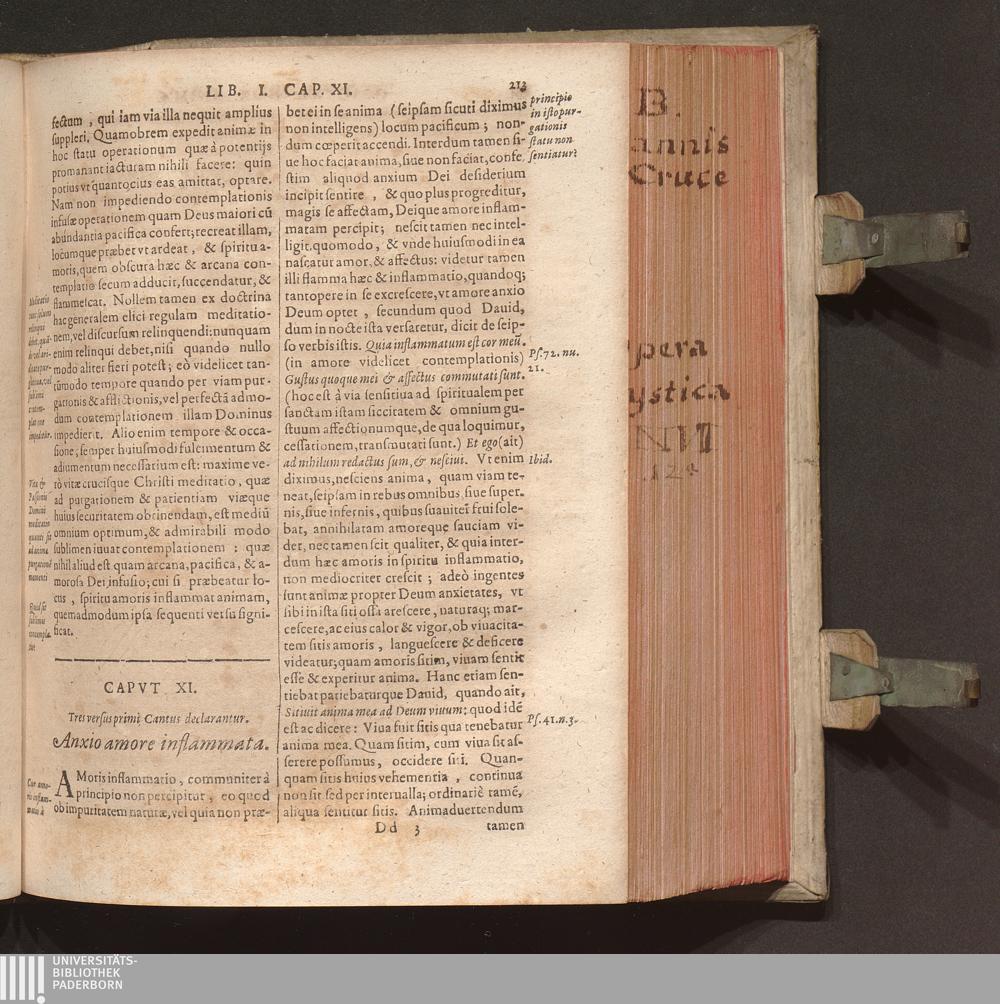 LIB. I. CAP. XI. 213
fectum, qui iam via illa nequit amplius
suppleri. Quamobrem expedit animæ in
hoc statu operationum quæ à potentijs
promanant iacturam nihili facere: quin
potius vt quantocius eas amittat, optare.
Nam non impediendo contemplationis
infusæ operationem quam Deus maiori cũ
abundantia pacifica confert; recreat illam,
locumque præbet vt ardeat, & spiritu a-
moris, quem obscura hæc & arcana con-
templatio secum adducit, succendatur, &
flammescat. Nollem tamen ex doctrina
hac generalem elici regulam meditatio-
nem, vel discursum relinquendi: nunquam
enim relinqui debet, nisi quando nullo
modo aliter fieri potest; eò videlicet tan-
tũmodo tempore quando per viam pur-
gationis & afflictionis, vel perfectã admo-
dum contemplationem illam Dominus
impedierit. Alio enim tempore & occa-
sione, semper huiusmodi fulcimentum &
adiumentum necessatium est: maxime ve-
rò vitæ crucisque Christi meditatio, quæ
ad purgationem & patientiam viæque
huius securitatem obtinendam, est mediũ
omnium optimum, & admirabili modo
sublimen iuuat contemplationem: quæ
nihil aliud est quam arcana, pacifica, & a-
morosa Dei infusio; cui si præbeatur lo-
cus, spiritu amoris inflammat animam,
quemadmodum ipsa sequenti versu signi-
ficat.
Meditatio
relinqui
Vita &
Passionis
Domini
meditatio
quanti sit
ad animæ
purgationẽ
momenti
Quid sit
sublimis
contempla-
tio
CAPVT XI.
Tres versus primi Cantus declarantur.
Anxio amore inflammata.
Cur amo-
ris inflam-
matio à
AMoris inflammatio, communiter à
principio non percipitur, eo quod
ob impuritatem naturæ, vel quia non præ-
bet ei in se anima (seipsam sicuti diximus
non intelligens) locum pacificum; non-
dum cœperit accendi. Interdum tamen si-
ue hoc faciat anima, siue non faciat, confe
stim aliquod anxium Dei desiderium
incipit sentire, & quo plus progreditur,
magis se affectam, Deique amore inflam-
matam percipit; nescit tamen nec intel-
ligit, quomodo, & vnde huiusmodi in ea
nascatur amor, & affectus: videtur tamen
illi flamma hæc & inflammatio, quandoq;
tantopere in se excrescere, vt amore anxio
Deum optet, secundum quod Dauid,
dum in nocte ista versaretur, dicit de seip-
so verbis istis. Quia inflammatum est cor meũ.
(in amore videlicet contemplationis)
Gustus quoque mei & affectus commutati sunt.
(hoc est à via sensitiua ad spiritualem per
sanctam istam siccitatem & omnium gu-
stuum affectionumque, de qua loquimur,
cessationem, transmutati sunt.) Et ego (ait)
ad nihilum redactus sum, & nesciui. Vt enim
diximus, nesciens anima, quam viam te-
neat, seipsam in rebus omnibus, siue super-
nis, siue infernis, quibus suauiter frui sole-
bat, annihilatam amoreque sauciam vi-
det, nec tamen scit qualiter, & quia inter-
dum hæc amoris in spiritu inflammatio,
non mediocriter crescit; adeò ingentes
sunt animæ propter Deum anxietates, vt
sibi in ista siti ossa arescere, naturaq; mar-
cescere, ac eius calor & vigor, ob viuacita-
tem sitis amoris, languescere & deficere
videatur; quam amoris sitim, viuam sentit
esse & experitur anima. Hanc etiam sen-
tiebat patiebaturque Dauid, quando ait,
Sitiuit anima mea ad Deum viuum: quod idẽ
est ac dicere: Viua fuit sitis qua tenebatur
anima mea. Quam sitim, cum viua sit as-
serere possumus, occidere siti. Quan-
quam sitis huius vehementia, continua
non sit sed per interualla; ordinariè tamẽ,
aliqua sentitur sitis. Animaduertendum
principio
in isto pur-
gationis
statu non
sentiatur?
Ps. 72. nu.
21.
Ibid.
Ps. 41. n. 3.
Dd 3 tamen
B.
annis
Cruce
pera
ystica
UNIVERSITÄTS-
BIBLIOTHEK
PADERBORN